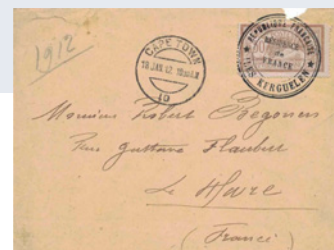 1912
CAPE TOWN
18 JAN 12
10
REPUBLIQUE FRANÇAISE
RESIDENCE
de
FRANCE
ILES KERGUELEN
Monsieur Robert Begouen
Rue Gustave Flaubert
Le Havre
(France)